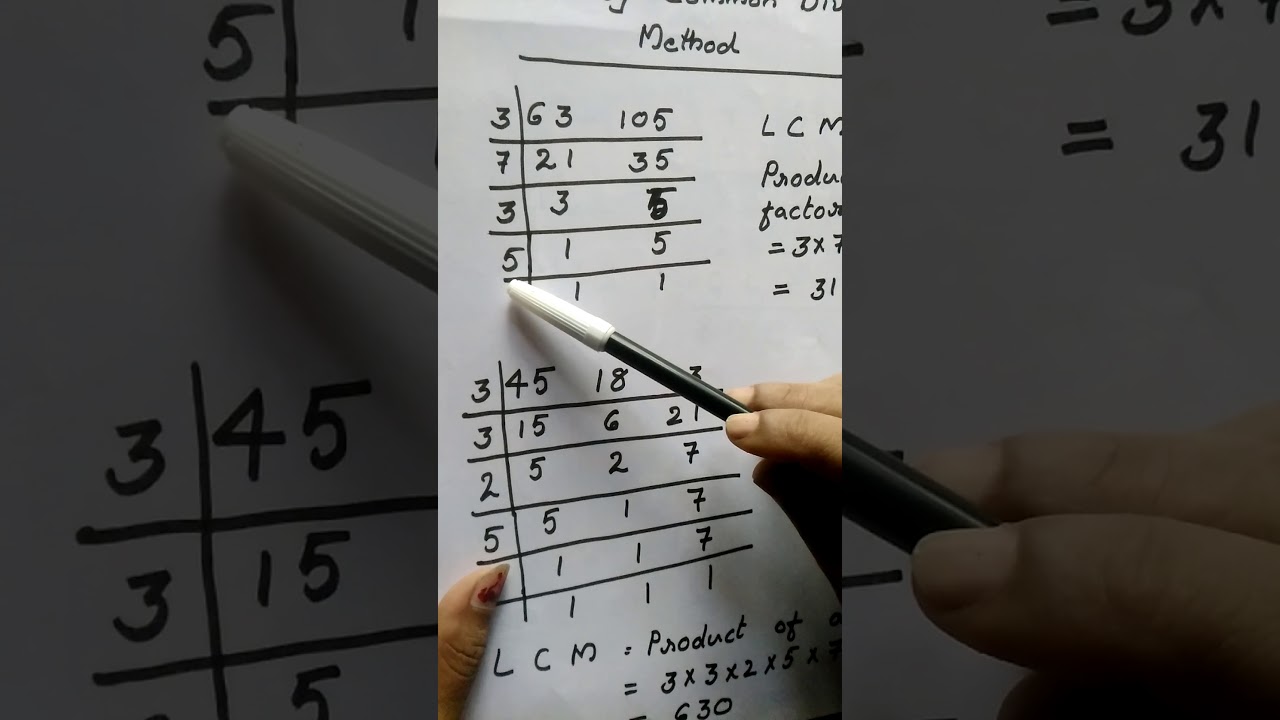 Common
Method
3 63 105
7 21 35
3 3 5
5 1 5
1 1
LCM
= 3×7
= 31
3 45 18
3 15 6 21
2 5 2 7
5 5 1 7
1 1 7
1 1 1
LCM = Product of
= 3×3×2×5×7
= 630